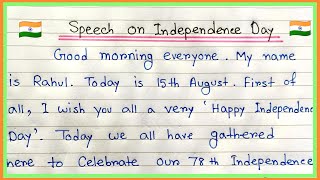 Speech on Independence Day
Good morning everyone. My name
is Rahul. Today is 15th August. First of
all, I wish you all a very 'Happy Independence
Day'. Today we all have gathered
here to Celebrate our 78th Independence